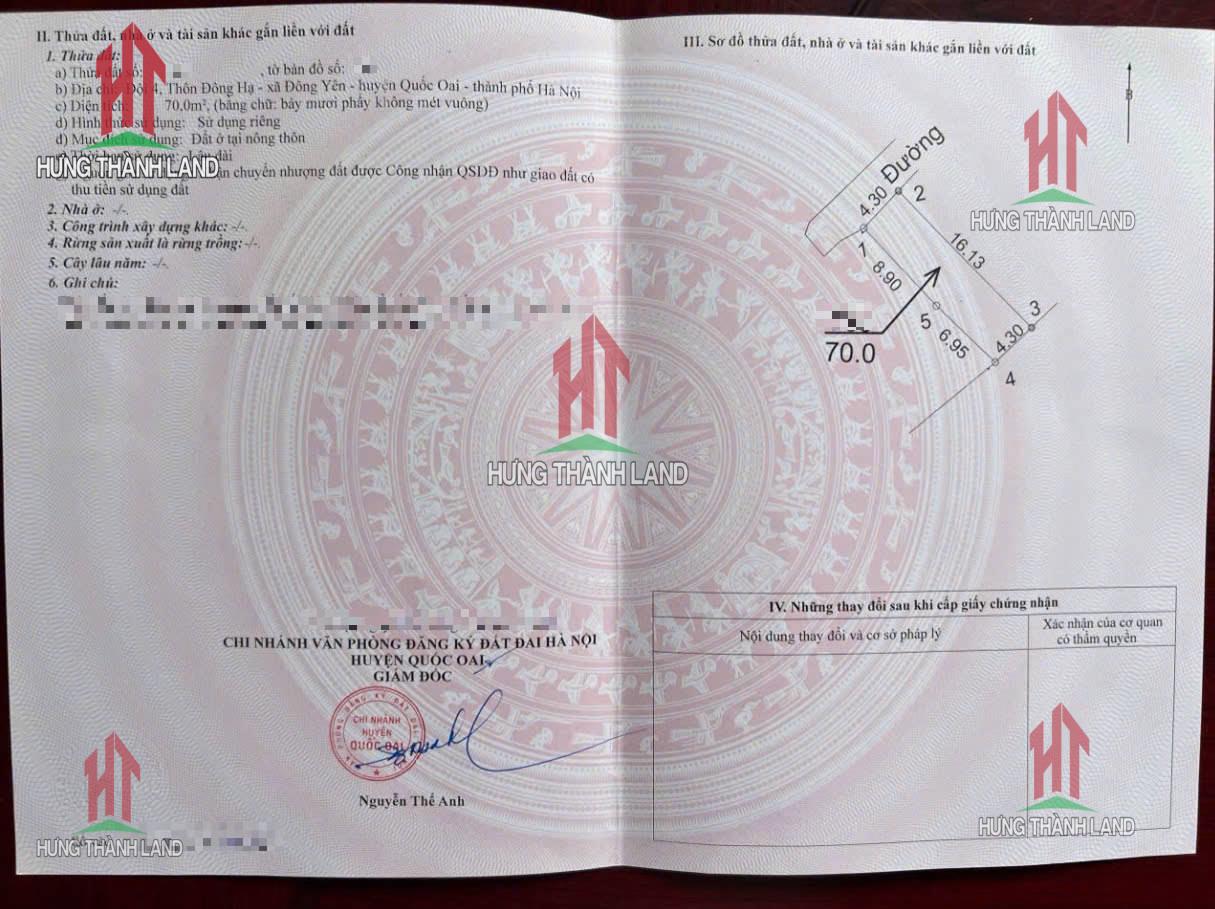 II. Thửa đất, nhà ở và tài sản khác gắn liền với đất
1. Thửa đất:
a) Thửa đất số: , tờ bản đồ số:
b) Địa chỉ: Đội 4, Thôn Đông Hạ - xã Đông Yên - huyện Quốc Oai - thành phố Hà Nội
c) Diện tích: 70,0m², (bằng chữ: bảy mươi phẩy không mét vuông)
d) Hình thức sử dụng: Sử dụng riêng
đ) Mục đích sử dụng: Đất ở tại nông thôn
dài
chuyển nhượng đất được Công nhận QSDĐ như giao đất có
thu tiền sử dụng đất
2. Nhà ở: -/-.
3. Công trình xây dựng khác: -/-.
4. Rừng sản xuất là rừng trồng: -/-.
5. Cây lâu năm: -/-.
6. Ghi chú:
CHI NHÁNH VĂN PHÒNG ĐĂNG KÝ ĐẤT ĐAI HÀ NỘI
HUYỆN QUỐC OAI
GIÁM ĐỐC
CHI NHÁNH
HUYỆN
QUỐC OAI
Nguyễn Thế Anh
III. Sơ đồ thửa đất, nhà ở và tài sản khác gắn liền với đất
B
Đường
4.30
2
1
16.13
8.90
5
6.95
3
4.30
4
70.0
IV. Những thay đổi sau khi cấp giấy chứng nhận
Nội dung thay đổi và cơ sở pháp lý
Xác nhận của cơ quan
có thẩm quyền
HƯNG THÀNH LAND
HƯNG THÀNH LAND
HƯNG THÀNH LAND
HƯNG THÀNH LAND
HƯNG THÀNH LAND